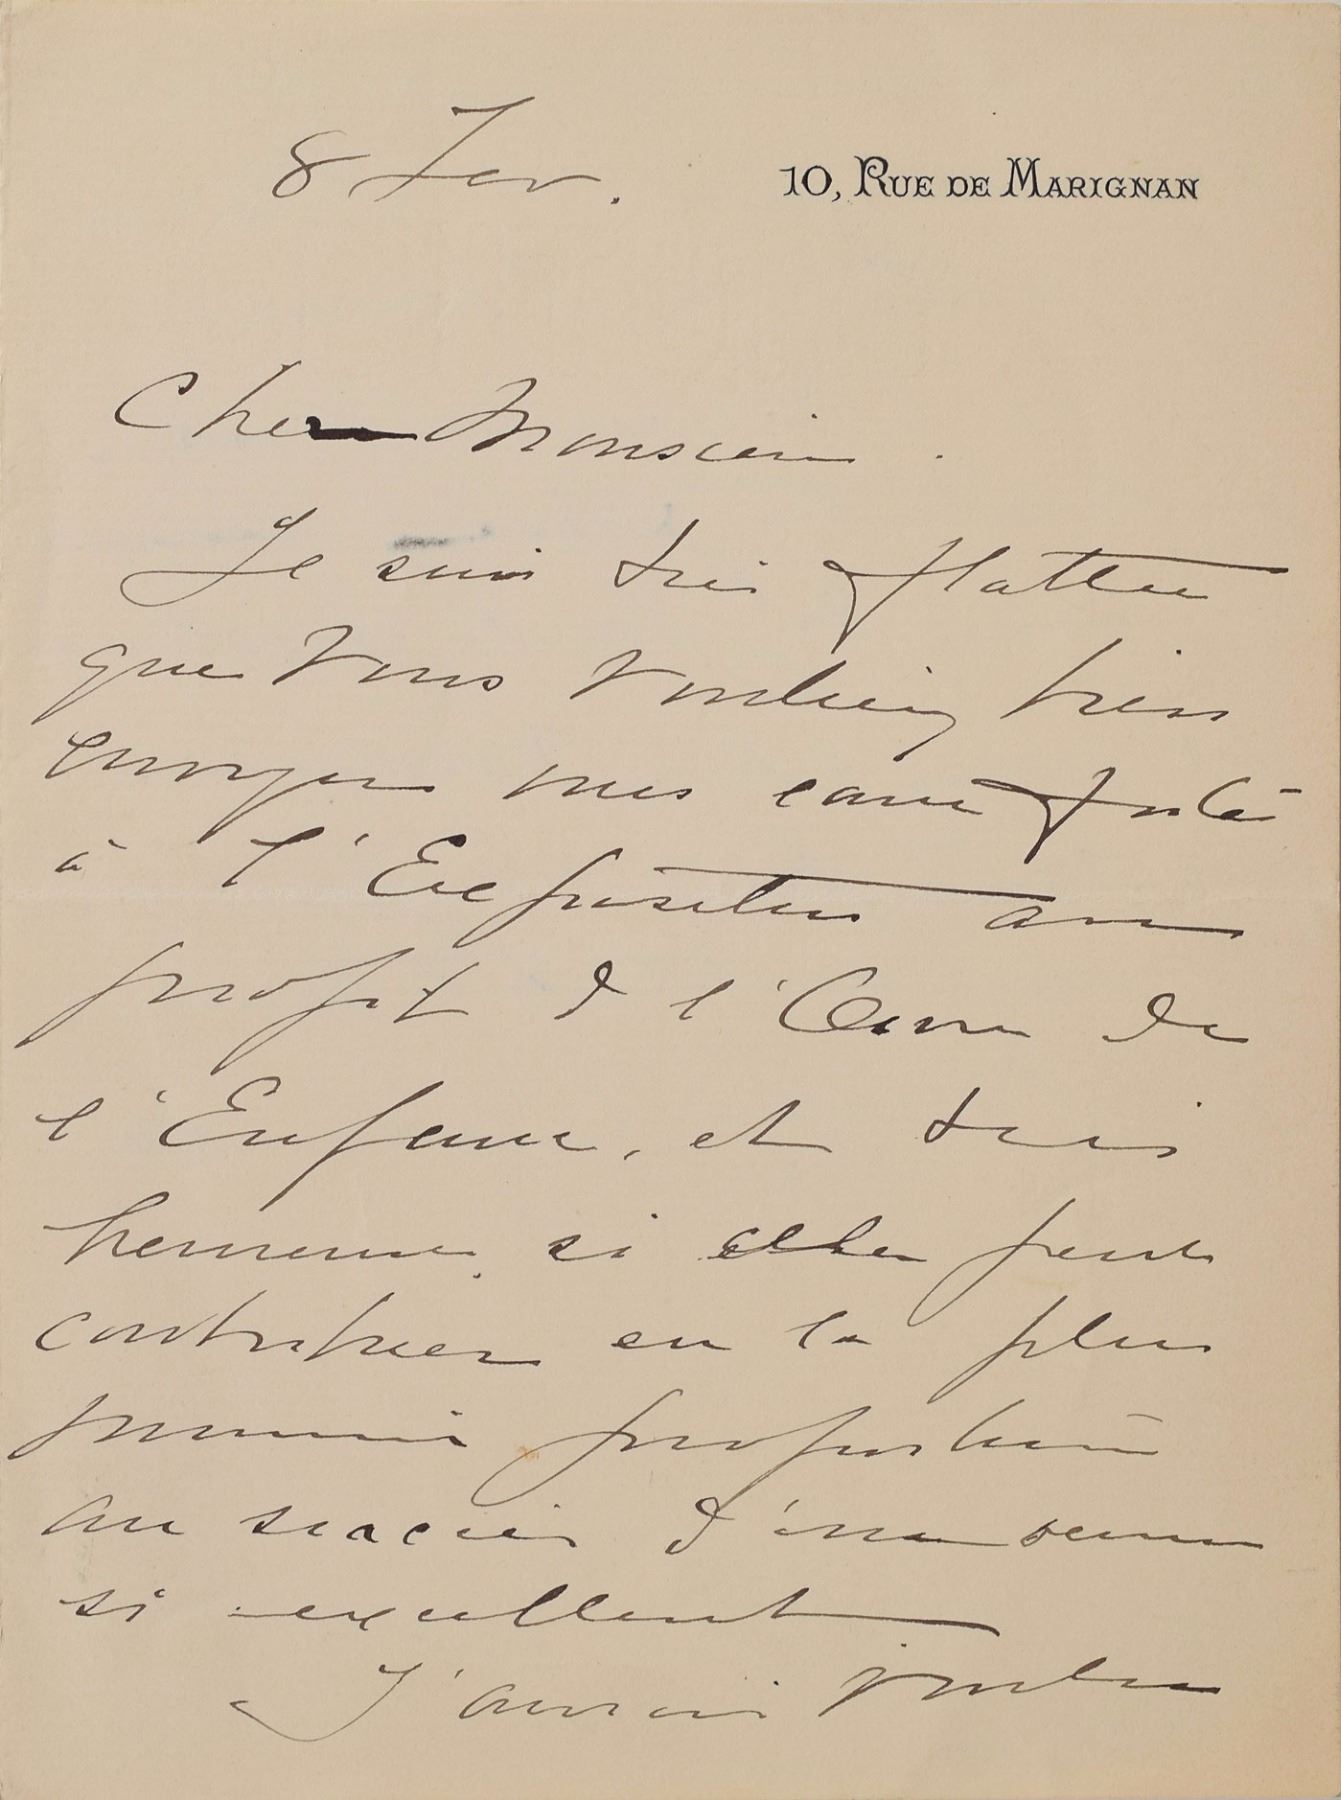 8 Fev.
10, RUE DE MARIGNAN
Cher Monsieur.
Je suis très flattée
que vous vouliez bien
envoyer mes eaux fortes
à l'Exposition au
profit de l'Oeuvre de
l'Enfance, et très
heureuse, si elles peuvent
contribuer en la plus
proportion
au succès d'une oeuvre
si excellent
J'aurais voulu